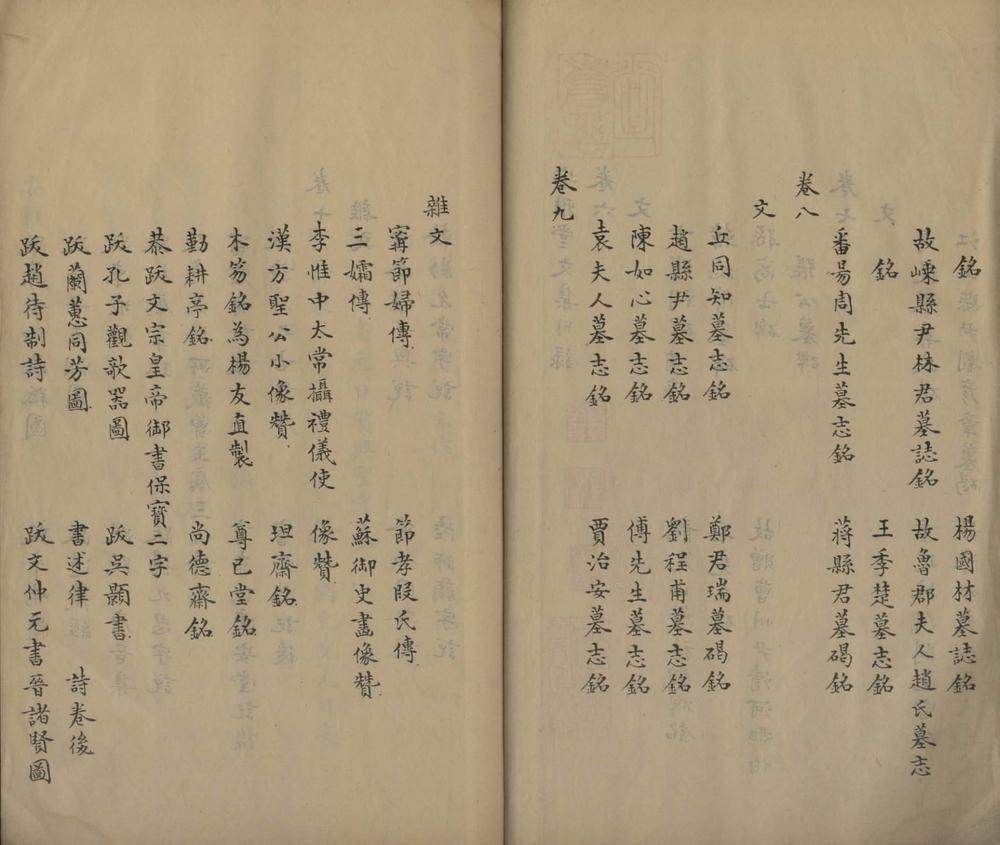 銘　楊國材墓誌銘
故嵊縣尹林君墓誌銘　故魯郡夫人趙氏墓志
銘　王季楚墓志銘
番昜周先生墓志銘　蔣縣君墓碣銘
卷八
文
丘同知墓志銘　鄭君瑞墓碣銘
趙縣尹墓志銘　劉程甫墓志銘
陳如心墓志銘　傅先生墓志銘
袁夫人墓志銘　賈治安墓志銘
卷九
雜文
甯節婦傳　節孝段氏傳
三孀傳　蘇御史畫像贊
李惟中太常攝禮儀使像贊
漢方聖公小像贊　坦齋銘
木笏銘為楊友直製　尊己堂銘
勤耕亭銘　尚德齋銘
恭跋文宗皇帝御書保寶二字
跋孔子觀欹器圖　跋吳顥書
跋蘭蕙同芳圖　書述律　詩卷後
跋趙待制詩　跋文仲元書晉諸賢圖